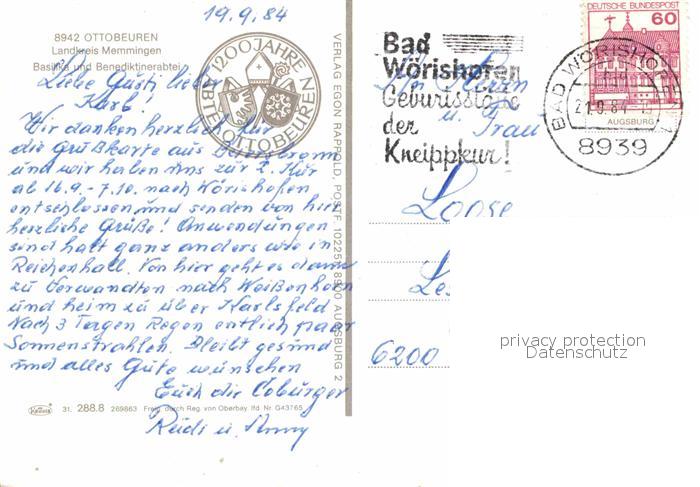 19.9.84
8942 OTTOBEUREN
Landkreis Memmingen
Basilika und Benediktinerabtei
1200 JAHRE
ABTEI OTTOBEUREN
Liebe Gusti lieber
Karl!
Wir danken herzlich für
die Grüßkarte aus
und wir haben uns zur 2. Kur
ab 16.9.-7.10. nach Wörishofen
entschlossen und senden von hier
herzliche Grüße! Anwendungen
sind halt ganz anders wie in
Reichenhall. Von hier geht es dann
zu Verwandten nach Weißenhorn
und heim zu über Karlsfeld
Nach 3 Tagen Regen entlich paar
Sonnenstrahlen. Bleibt gesund
und alles Gute wünschen
Euch die Coburger
Rudi u. Anny
31. 288.8 269863 Freig. durch Reg. von Oberbay. lfd Nr. G43765
VERLAG EGON RAPPOLD, POSTF. 102251, 8900 AUGSBURG 2
Bad
Wörishofen
Geburtsstätte
der
Kneippkur!
DEUTSCHE BUNDESPOST
60
BAD WÖRISHOFEN
21.9.84
AUGSBURG
8939
u. Frau
Loose
6200
privacy protection
Datenschutz